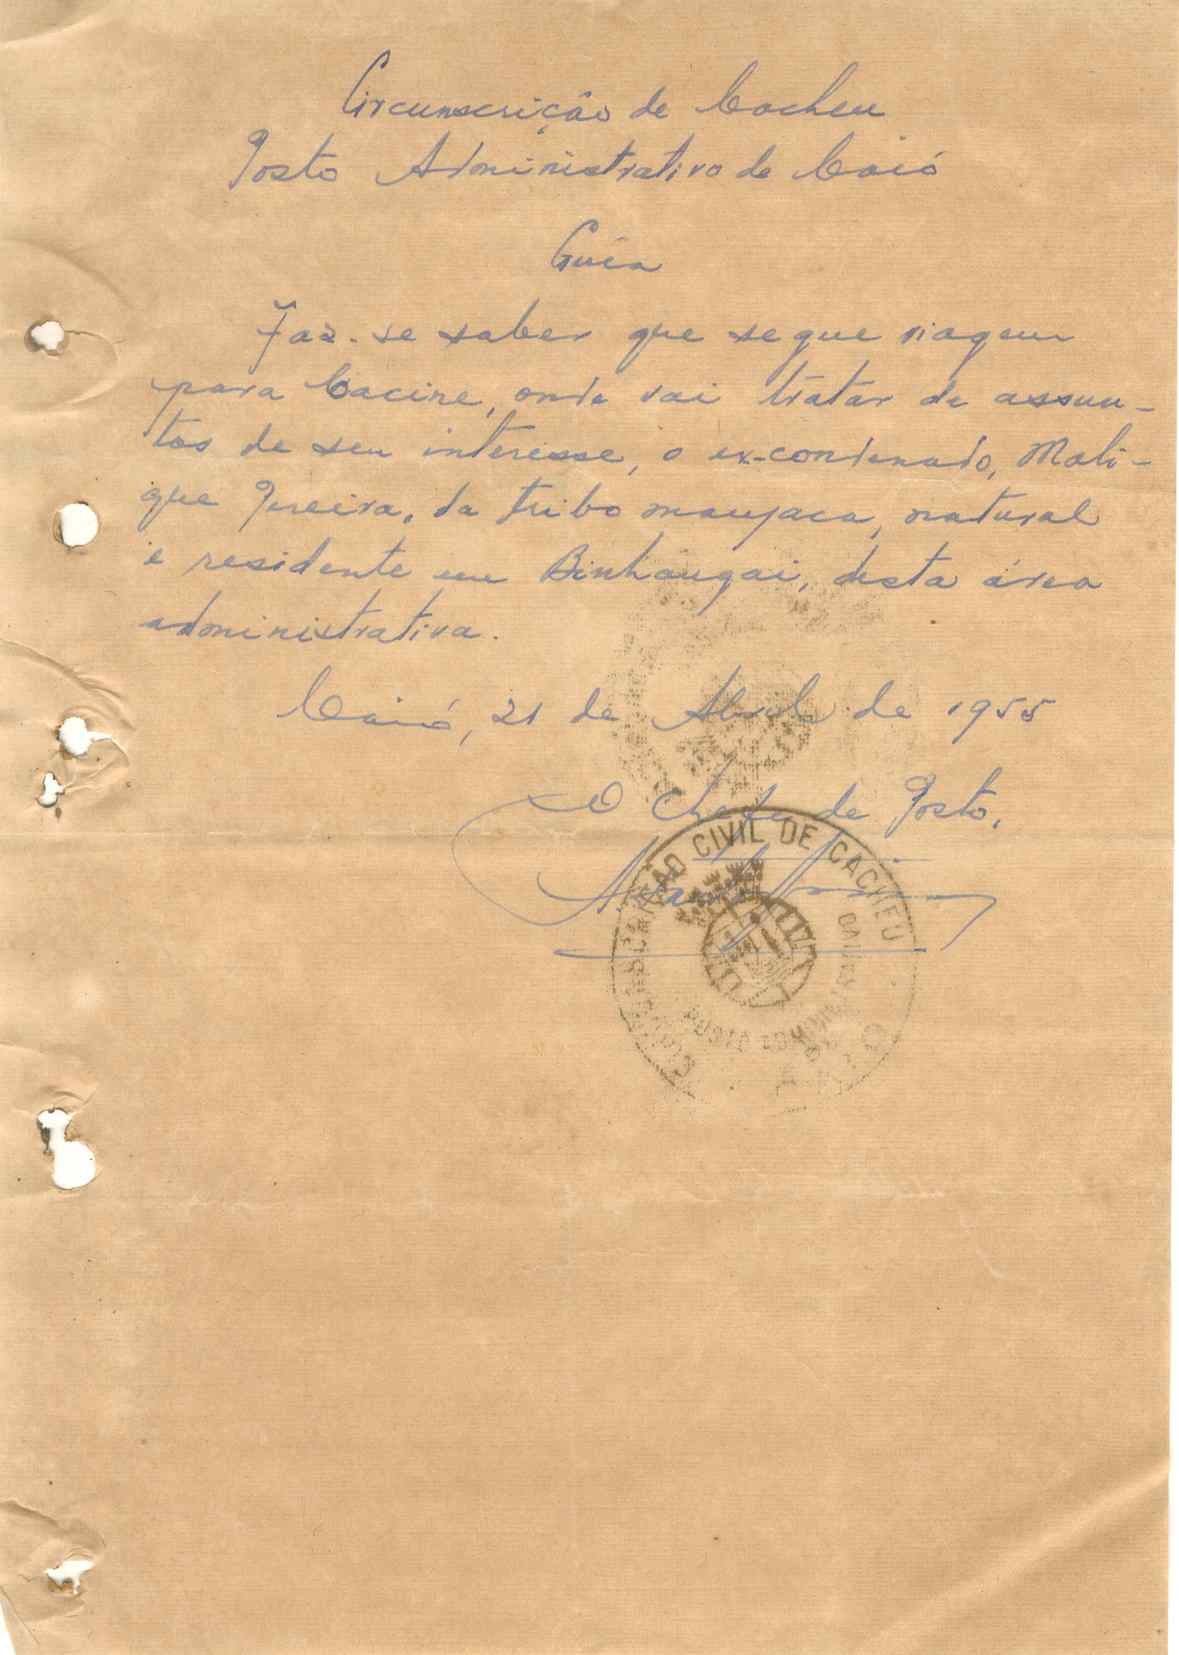 Circunscrição de Cacheu
Posto Administrativo de Caió
Guia
Faz-se saber que segue viagem
para Cacine, onde vai tratar de assun-
tos de seu interesse, o ex-condenado, Mali-
que Pereira, da tribo manjaca, natural
e residente em Binhangai, desta área
administrativa.
Caió, 21 de Abril de 1955
O Chefe de Posto,
CIRCUNSCRIÇÃO CIVIL DE CACHEU
POSTO